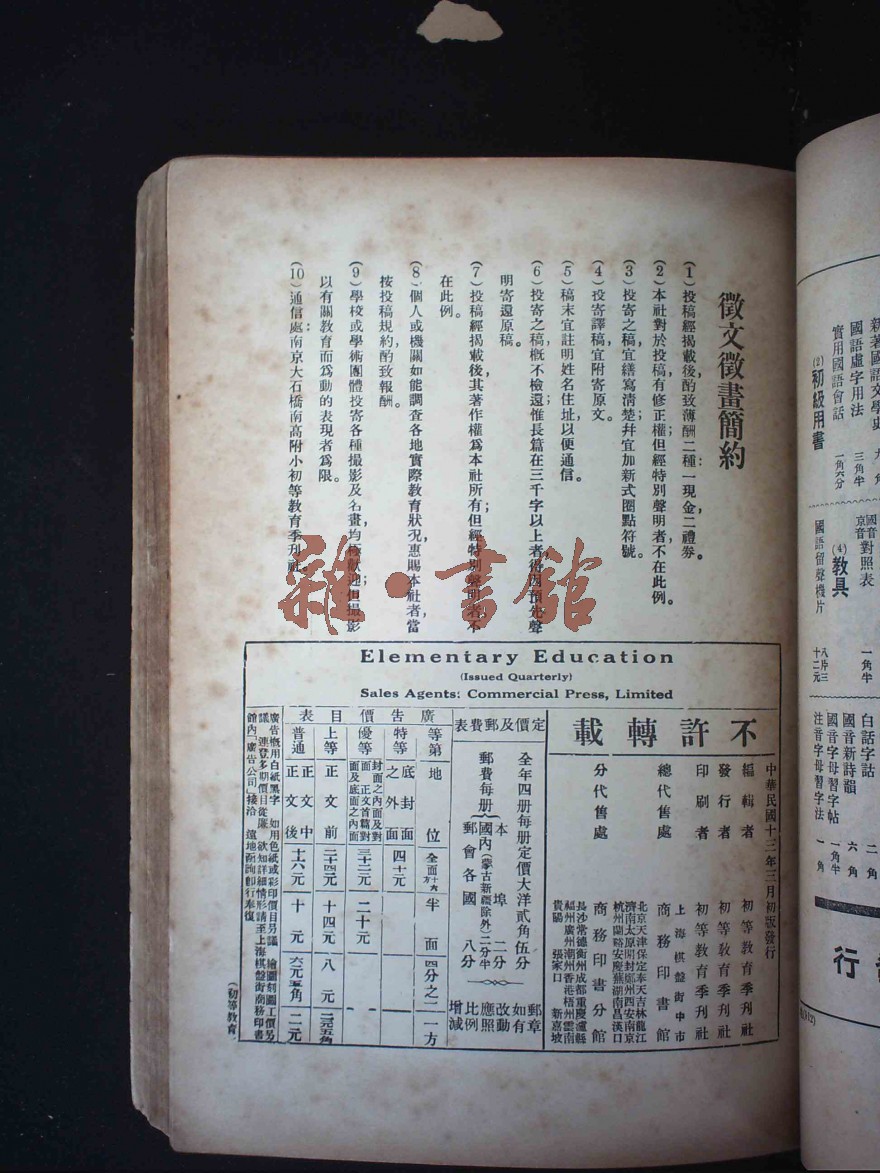 徵文徵畫簡約
(1)投稿經揭載後,酌致薄酬二種:一現金,二禮券。
(2)本社對於投稿,有修正權;但經特別聲明者,不在此例。
(3)投寄之稿,宜繕寫清楚,幷宜加新式圈點符號。
(4)投寄譯稿,宜附寄原文。
(5)稿末宜註明姓名住址,以便通信。
(6)投寄之稿,概不檢還;惟長篇在三千字以上者得因預先聲
明寄還原稿。
(7)投稿經揭載後,其著作權爲本社所有;但經特別聲明者,不
在此例。
(8)個人或機關如能調查各地實際教育狀況,惠賜本社者,當
按投稿規約,酌致報酬。
(9)學校或學術團體投寄各種撮影及名畫,均極歡迎;但撮影
以有關教育而爲動的表現者爲限。
(10)通信處:南京大石橋南高附小初等教育季刊社。
雜·書館
Elementary Education
(Issued Quarterly)
Sales Agents: Commercial Press, Limited
中華民國十三年三月初版發行
不許轉載
編輯者 初等教育季刊社
發行者 初等教育季刊社
印刷者 初等教育季刊社
總代售處 上海棋盤街中市
商務印書館
分代售處 商務印書分館
北京天津保定奉天吉林龍江
濟南太原開封鄭州西安南京
杭州蘭谿安慶蕪湖南昌漢口
長沙常德衡州成都重慶瀘縣
福州廣州潮州香港梧州雲南
貴陽 張家口 新嘉坡
定價及郵費表
全年四册每册定價大洋貳角伍分
郵費每册
本埠 二分
國內(蒙古新疆除外)二分半
郵會各國 八分
郵章如有改動應照比例增減
廣告價目表
等第 地位 全面 半面 四分之一 一方
特等 底封面之外面 四十元
優等 封面之內面及對面 正文首篇對面及底面之內面 三十二元 二十元
上等 正文前 二十四元 十四元 八元
普通 正文中 正文後 十六元 十元 六元五角 二元
廣告概用白紙黑字 如用色紙或彩印價目另議 繪圖刻圖工價另
議 連登多期價目從廉 欲知詳細情形請至上海棋盤街商務印書
館內「廣告公司」接洽 遠地函詢卽行奉復
(初等教育
新著國語文學史
國語虛字用法 三角半
實用國語會話 一角六分
(2)初級用書
國音京音對照表 一角半
(4)教具
國語留聲機片 八片三十二元
白話字詁 二角
國音新詩韻 六角
國音字母習字帖 一角半
注音字母習字法 一角
行